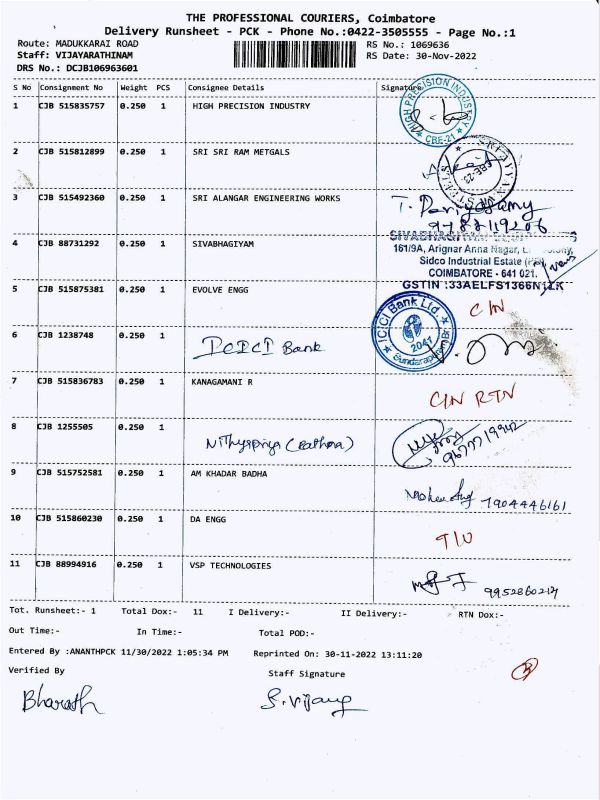 THE PROFESSIONAL COURIERS, Coimbatore
Delivery Runsheet - PCK - Phone No.:0422-3505555 - Page No.:1
Route: MADUKKARAI ROAD RS No.: 1069636
Staff: VIJAYARATHINAM RS Date: 30-Nov-2022
DRS No.: DCJB106963601
S No Consignment No Weight PCS Consignee Details Signature
1 CJB 515835757 0.250 1 HIGH PRECISION INDUSTRY HIGH PRECISION INDUSTRY CBE-21
2 CJB 515812899 0.250 1 SRI SRI RAM METGALS CBE-23
3 CJB 515492360 0.250 1 SRI ALANGAR ENGINEERING WORKS T.
4 CJB 88731292 0.250 1 SIVABHAGIYAM
161/9A, Arignar Anna Nagar,
Sidco Industrial Estate
COIMBATORE - 641 021.
GSTIN :33AELFS1366N1ZK
5 CJB 515875381 0.250 1 EVOLVE ENGG CIN
6 CJB 1238748 0.250 1 ICICI Bank ICICI Bank Ltd. 2041
7 CJB 515836783 0.250 1 KANAGAMANI R CIN RTN
8 CJB 1255505 0.250 1 Nithyapriya
9 CJB 515752581 0.250 1 AM KHADAR BADHA 7904446161
10 CJB 515860230 0.250 1 DA ENGG
11 CJB 88994916 0.250 1 VSP TECHNOLOGIES
Tot. Runsheet:- 1 Total Dox:- 11 I Delivery:- II Delivery:- RTN Dox:-
Out Time:- In Time:- Total POD:-
Entered By :ANANTHPCK 11/30/2022 1:05:34 PM Reprinted On: 30-11-2022 13:11:20
Verified By Staff Signature
Bharath S. Vijay